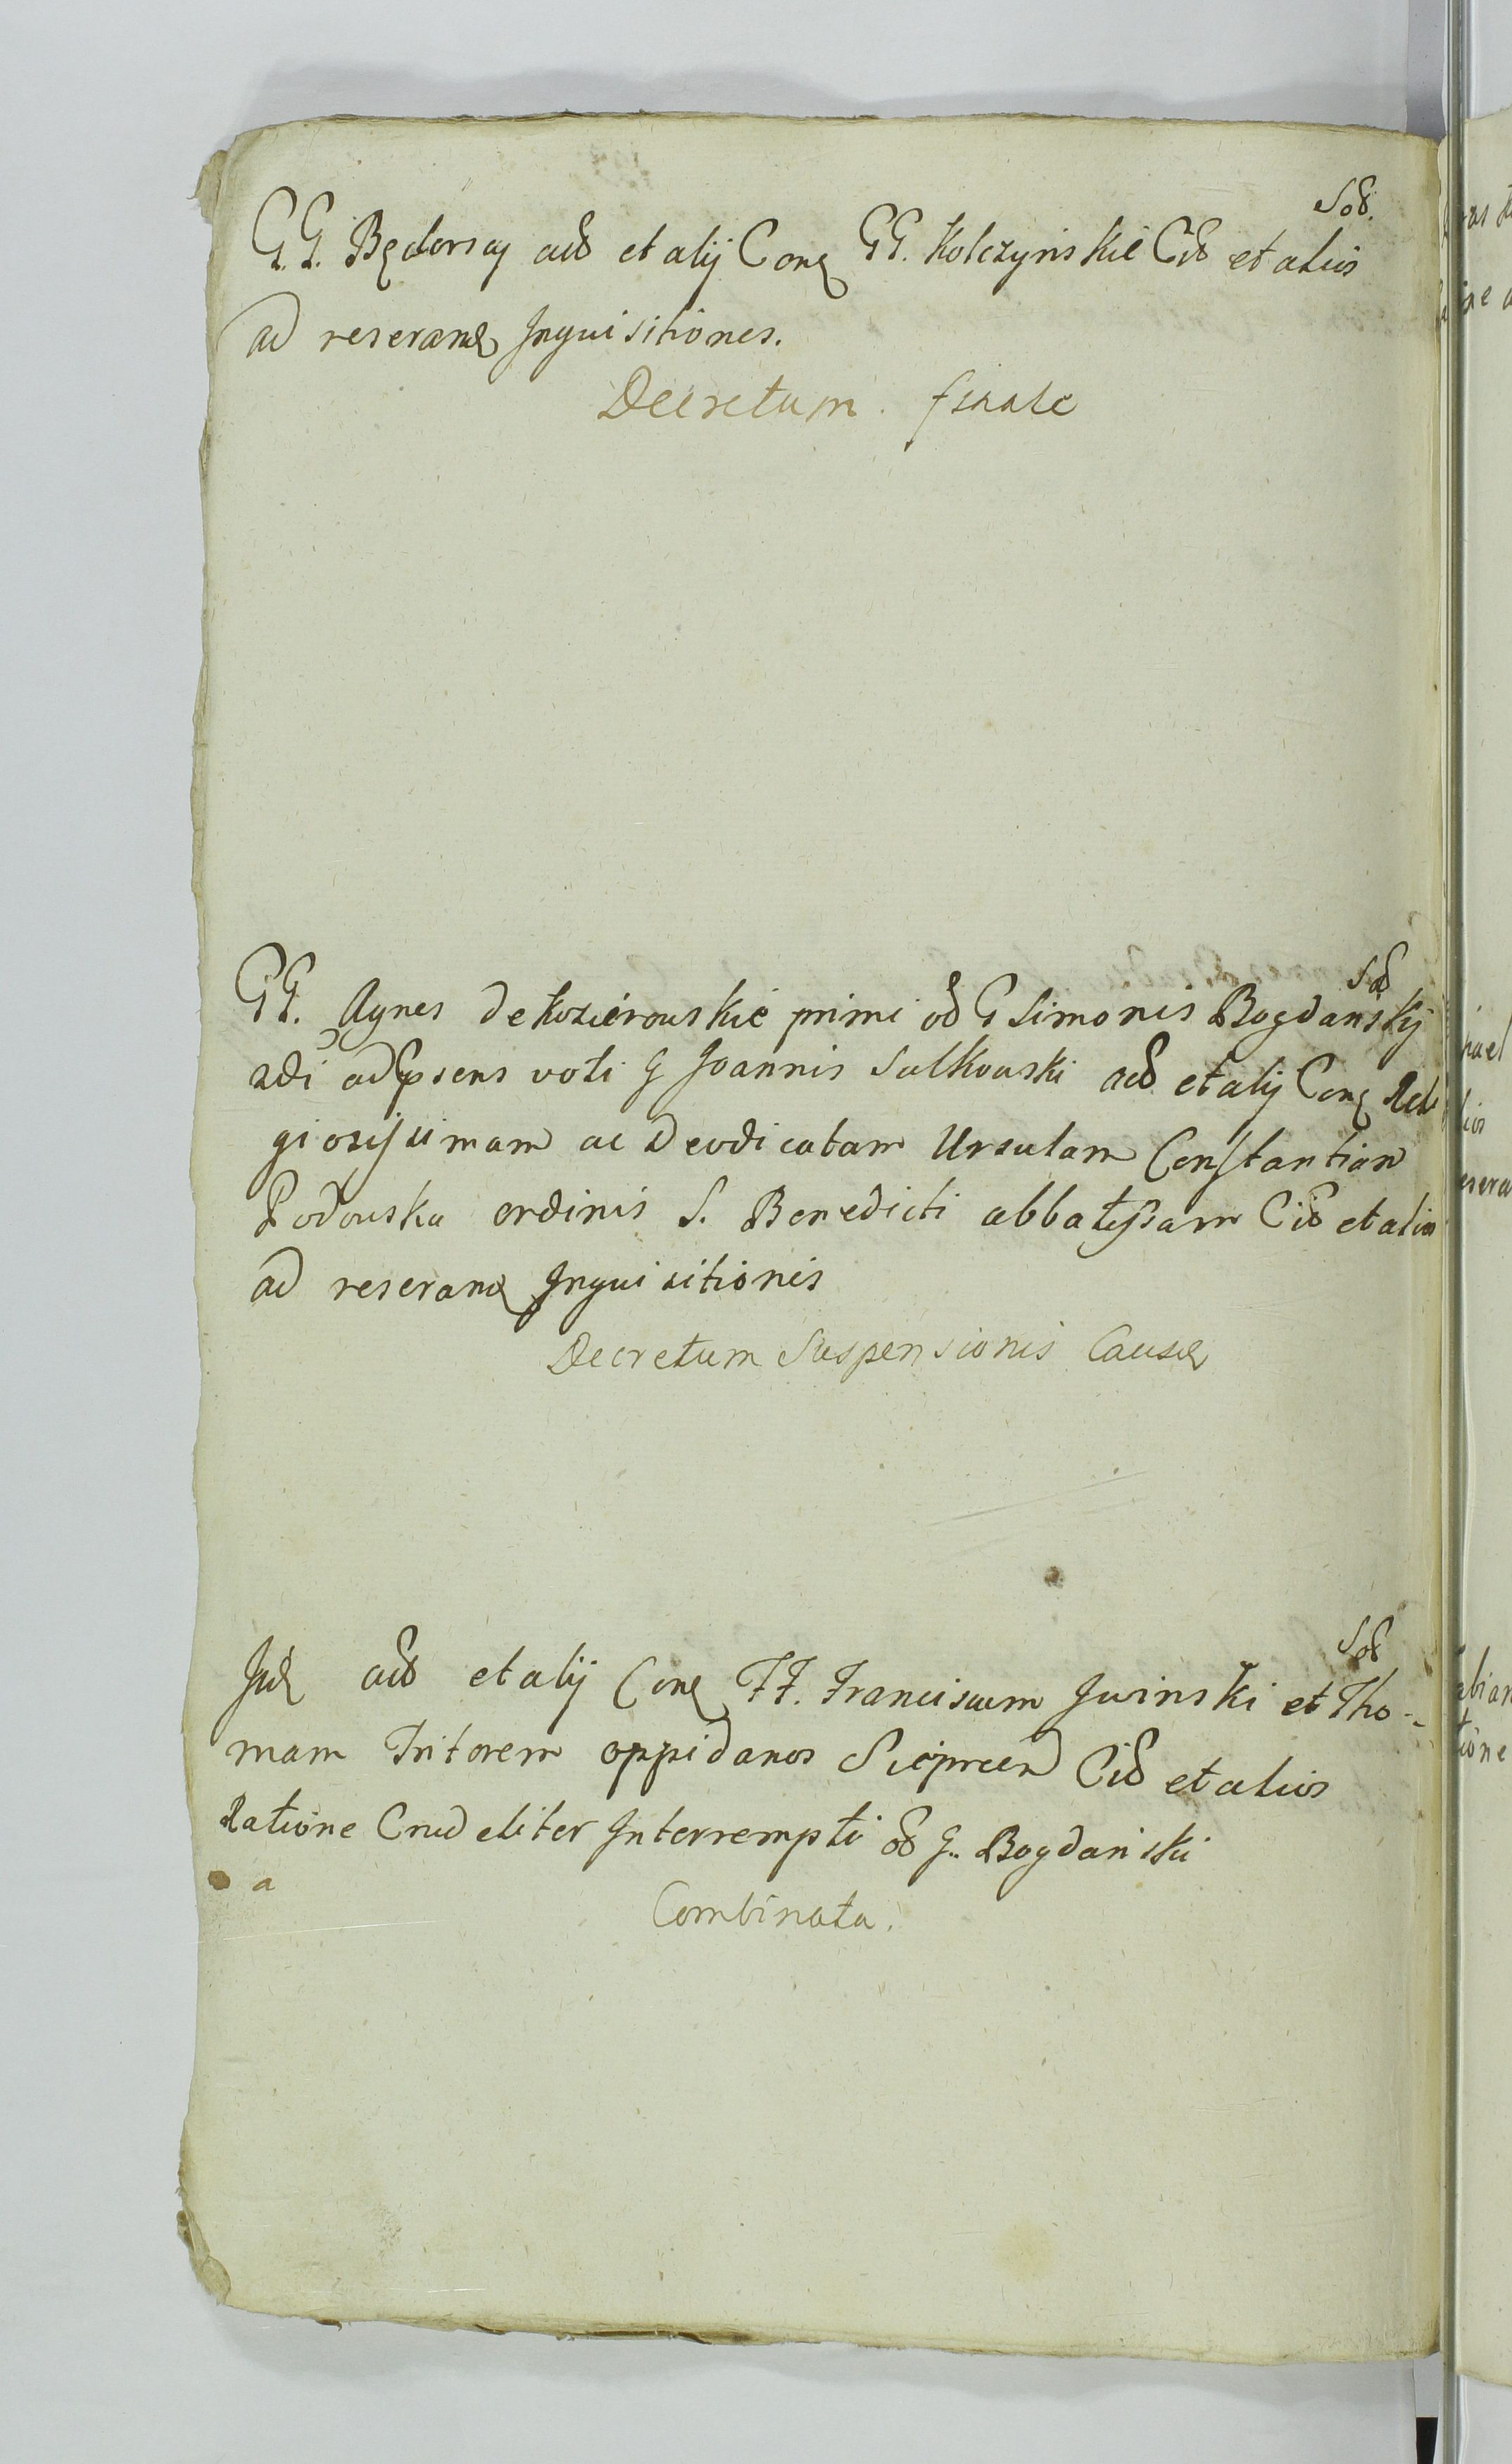 Sod.
GG. Będorscy ad et alij Conq GG. Kolczynskie Cid et alios
ad reserand Inquisitiones.
Decretum finale
Sod
GG. Agnes de Kozierouskie primi od G Simonis Bogdanskij
adi ad psens voti G Joannis Sulkouski ad et alij Conq Reli
giosissimam ac Deodicatam Ursulam Constantiam
Podouska ordinis S. Benedicti abbatissam Cid et alios
ad reserand Inquisitionis
Decretum Suspensionis Causæ
Sod
Iid ad et alij Conq FF. Franciscum Iwinski et Tho-
mam Tritorem oppidanos Sieprcen Cid et alios
Ratione Crudeliter Interrempti od G. Bogdanski
a
Combinata.